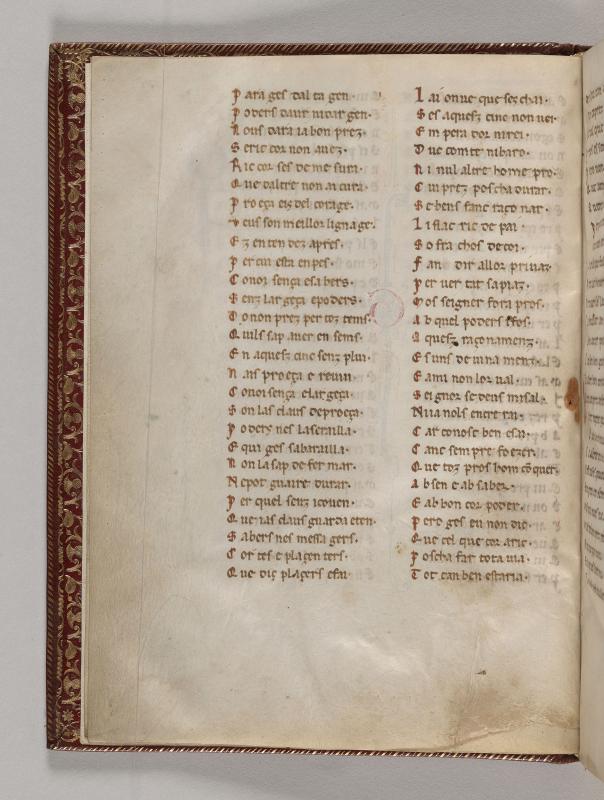 Para ges dal ta gen·
Poders daur ni dar gen·
Nous dara ia bon prez·
Seric cor non auez·
Ric cor ses de me sura·
Que daltre non ai cura·
Proeça eis del corage·
Ueus son meillor lignage·
Ez en ten dez apres·
Per cui esta en pes·
Conoi sença esabers·
Senz lar geça epoders·
Donon prez per toz tems·
Quils sap auer en sems·
En aquesz cinc senz plui·
Nais proeça e reuiu
Conoi sença elar geça·
Son las claus deproeça·
Poders nes laserailla·
E qui ges sabarailla·
Non la sap de fer mar·
Nepot guaire durar·
Per quel senz iouen·
Que las claus guarda eten·
Sabers nes messa gers·
Cor tes e plaçen ters·
Que diç plaçers efai·
Lai onue que seschai·
Ses aquesz cinc non uei·
Em pera dor nirei·
Duc comte nibaro·
Ni nul altre home pro·
Cui prez poscha durar·
Sebens fanc raço nar·
Listac ric de pai·
Sofra chos decor·
Fan dir allor priuaz
Per uer tat sapiaz·
Mos seigner fora pros·
Ab quel poders ffos·
Aquesz raçonamenz·
Es uns deuina menz·
E ami non lor ual·
Seignor se deus mi sal·
Niia nols entre rai·
Car conosc ben esai·
Canc sem pre fo ezer·
Que toz pros hom cõquer·
Ab sen e ab saber·
E ab bon cor poder·
Pero ges eu non dic·
Que cel que cor aric·
Poscha far tota uia·
Tot can ben estaria·